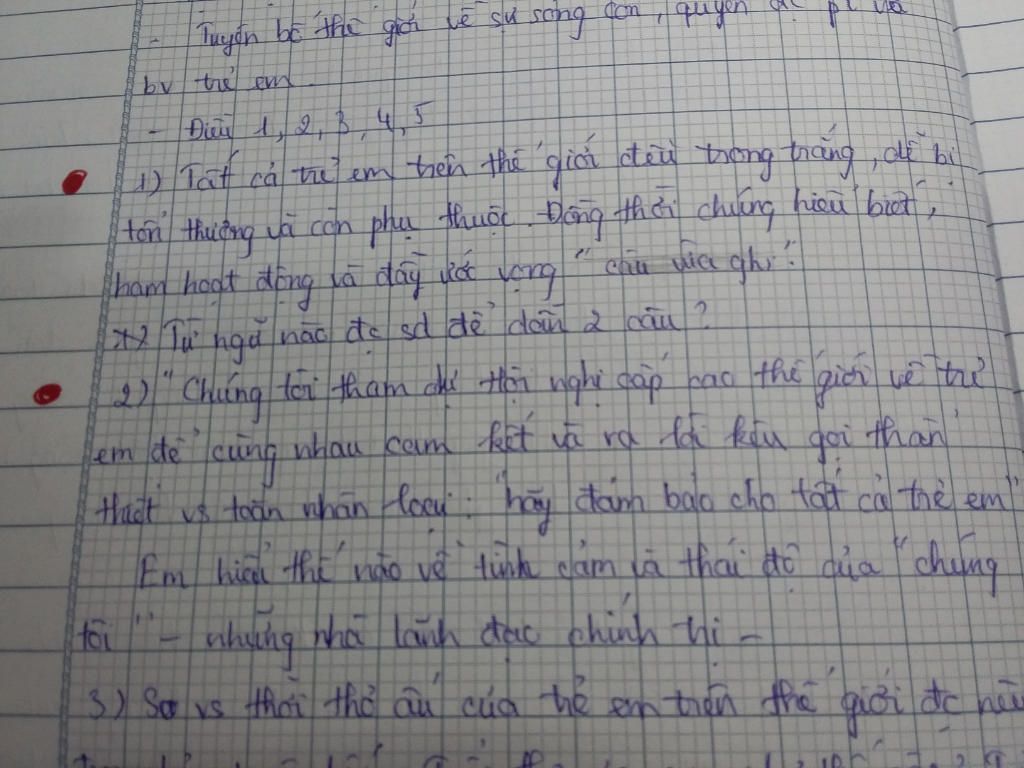 - Tuyên bố thế giới về sự sống còn, quyền đc pt và
bv trẻ em
- Điều 1, 2, 3, 4, 5
1) Tất cả trẻ em trên thế giới đều trong trắng, dễ bị
tổn thương và còn phụ thuộc. Đồng thời chúng hiểu biết,
ham hoạt động và đầy ước vọng " câu vừa ghi".
Từ ngữ nào đc sd để dẫn 2 câu?
2) "Chúng tôi tham dự Hội nghị cấp cao thế giới về trẻ
em để cùng nhau cam kết và ra lời kêu gọi khẩn
thiết vs toàn nhân loại: hãy đảm bảo cho tất cả trẻ em"
Em hiểu thế nào về tình cảm và thái độ của "chúng
tôi" - những nhà lãnh đạo chính trị -
3) So vs thời thơ ấu của trẻ em trên thế giới đc nêu